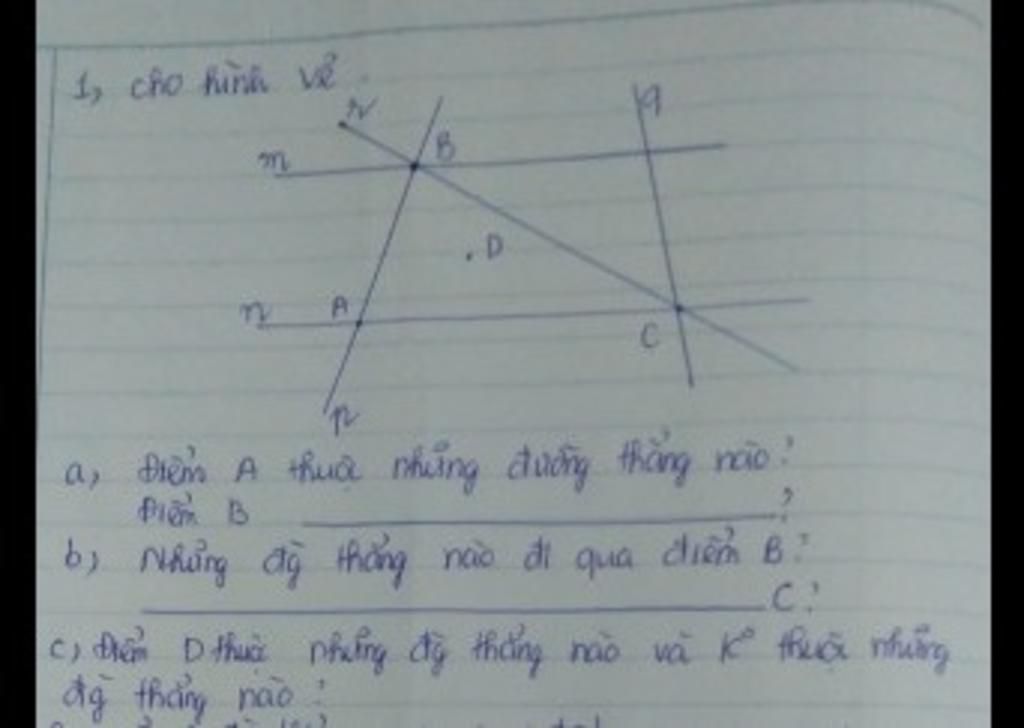 1, cho hình vẽ.
r
q
m
B
D
n
A
C
p
a, Điểm A thuộc những đường thẳng nào?
Điểm B ?
b) Những đg̀ thẳng nào đi qua điểm B?
C?
c) Điểm D thuộc những đg̀ thẳng nào và K° thuộc những
đg̀ thẳng nào?